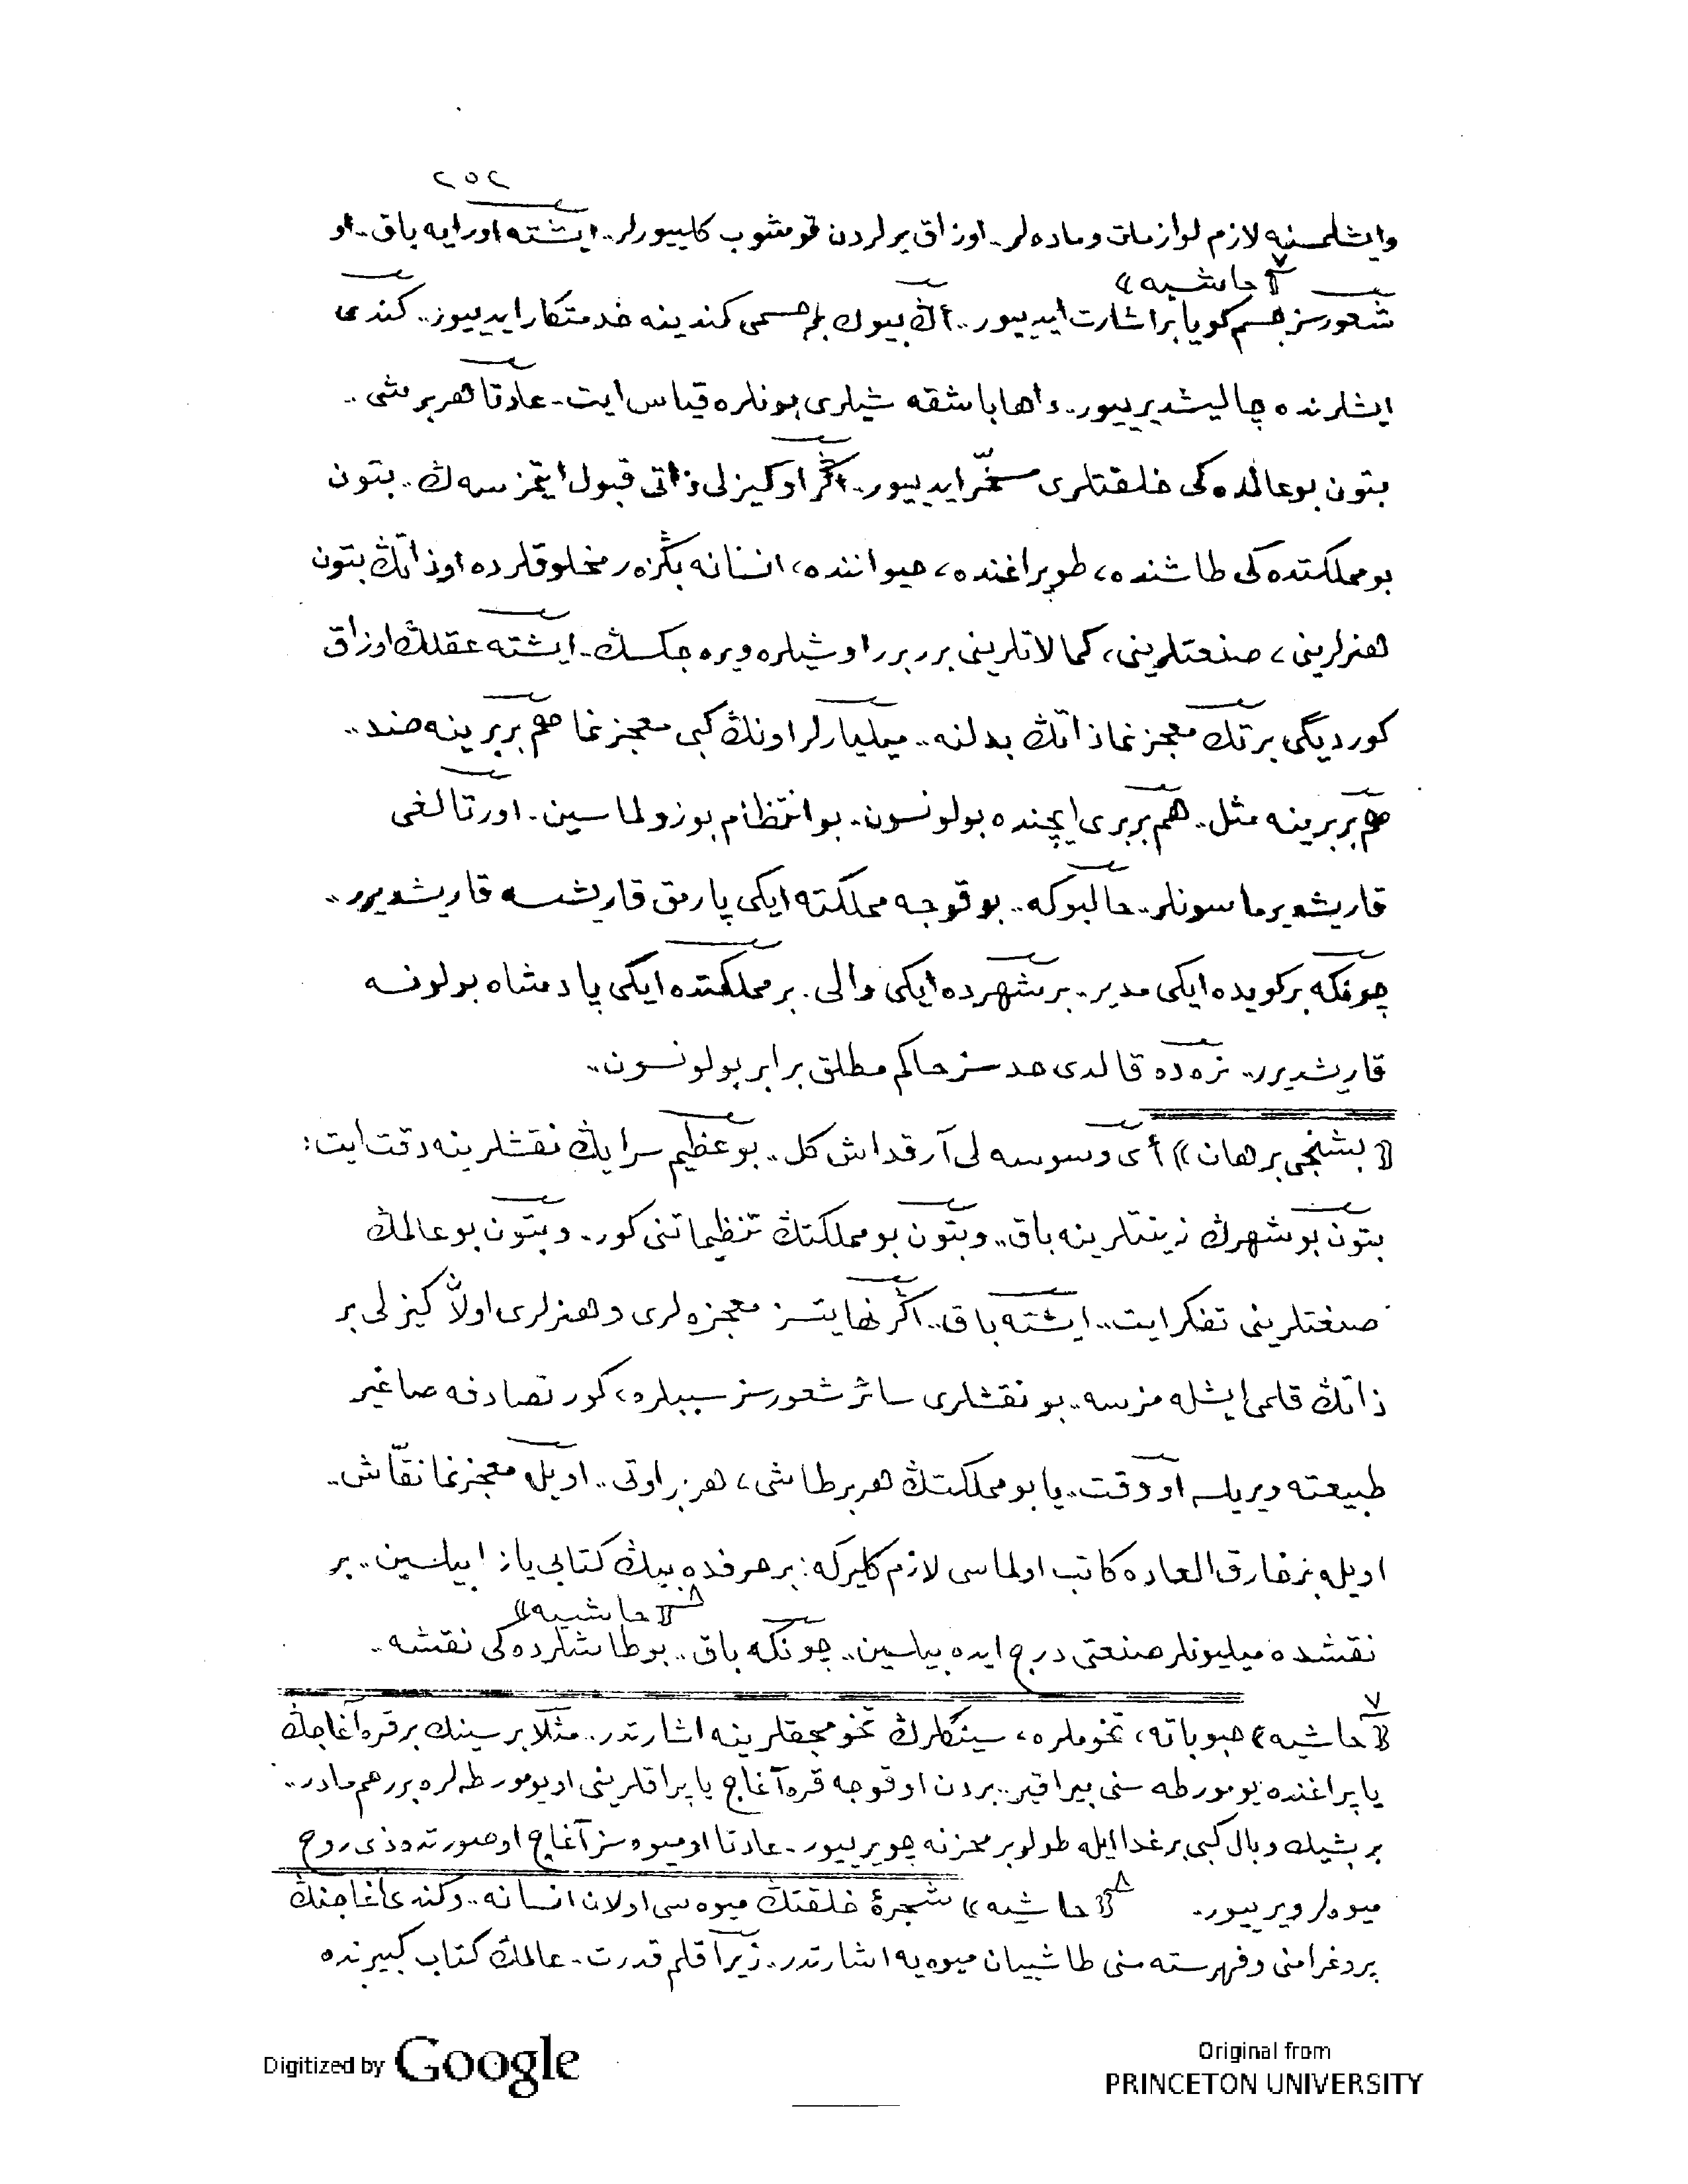 ٢٥٢
وايشلمسنه لازم لوازمات وماده لر.. اوزاق يرلردن قوشوب كلييورلر.. ايشته اورايه باق.. او
﴿حاشيه﴾
شعورسز جسم كويا بر اشارت ايدييور.. أڭ بيوك بر جسمى كندينه خدمتكار ايدييور.. كندى
ايشلرنده چاليشديرييور.. داها باشقه شيلرى بونلره قياس ايت.. عادتا هر بر شى..
بتون بو عالمده كى خلقتلرى مسخّر ايدييور.. اگر او كيزلى ذاتى قبول ايتمز سه ڭ.. بتون
بو مملكتده كى طاشنده، طوپراغنده، حيواننده، انسانه بڭزه ر مخلوقلرده او ذاتڭ بتون
هنرلرينى، صنعتلرينى، كمالاتلرينى برر برر او شيلره ويره جكسڭ.. ايشته عقلڭ اوزاق
كورديگى بر تك معجزنما ذاتڭ بدلنه.. ميليارلر اونڭ كبى معجزنما هم بربرينه ضد..
هم بربرينه مثل.. هم بربرى ايچنده بولونسون.. بو انتظام بوزولماسين.. اورتالغى
قاريشديرماسونلر.. حالبوكه.. بو قوجه مملكته ايكى پارمق قاريشسه قاريشديرر..
چونكه بر كويده ايكى مدير.. بر شهرده ايكى والى.. بر مملكتده ايكى پادشاه بولونسه
قاريشديرر.. نره ده قالدى حدسز حاكم مطلق برابر بولونسون..
﴿بشنجى برهان﴾ أى وسوسه لى آرقداش كل.. بو عظيم سرايڭ نقشلرينه دقت ايت:
بتون بو شهرڭ زينتلرينه باق.. وبتون بو مملكتڭ تنظيماتنى كور.. وبتون بو عالمڭ
صنعتلرينى تفكر ايت.. ايشته باق.. اگر نهايتسز معجزه لرى وهنرلرى اولاڭ كيزلى بر
ذاتڭ قلمى ايشله مزسه.. بو نقشلرى سائر شعورسز سببلره، كور تصادفه صاغير
طبيعته ويريلسه او وقت.. يا بو مملكتڭ هر بر طاشى، هر بر اوتى.. اويله معجزنما نقّاش..
اويله بر خارق العاده كاتب اولماسى لازم كليركه: بر حرفده بيڭ كتابى يازابيلسين.. بر
﴿حاشيه﴾
نقشده ميليونلر صنعتى درج ايده بيلسين.. چونكه باق.. بو طاشلرده كى نقشه..
﴿حاشيه﴾ حبوباته، تخوملره، سينكلرڭ تخومجقلرينه اشارتدر.. مثلا بر سينك بر قره آغاجڭ
ياپراغنده يومورطه سنى بيراقير.. بردن او قوجه قره آغاج ياپراقلرينى او يومورطه لره برر رحم مادر..
بر بشيك وبال كبى بر غدا ايله طولو بر مخزنه چويرييور.. عادتا او ميوه سز آغاج او صورتده ذى روح
ميوه لر ويرييور.. ﴿حاشيه﴾ شجرۀ خلقتڭ ميوه سى اولان انسانه.. وكندى آغاجنڭ
پروغرامنى وفهرسته سنى طاشييان ميوه يه اشارتدر.. زيرا قلم قدرت.. عالمڭ كتاب كبيرنده
Digitized by Google
Original from
PRINCETON UNIVERSITY